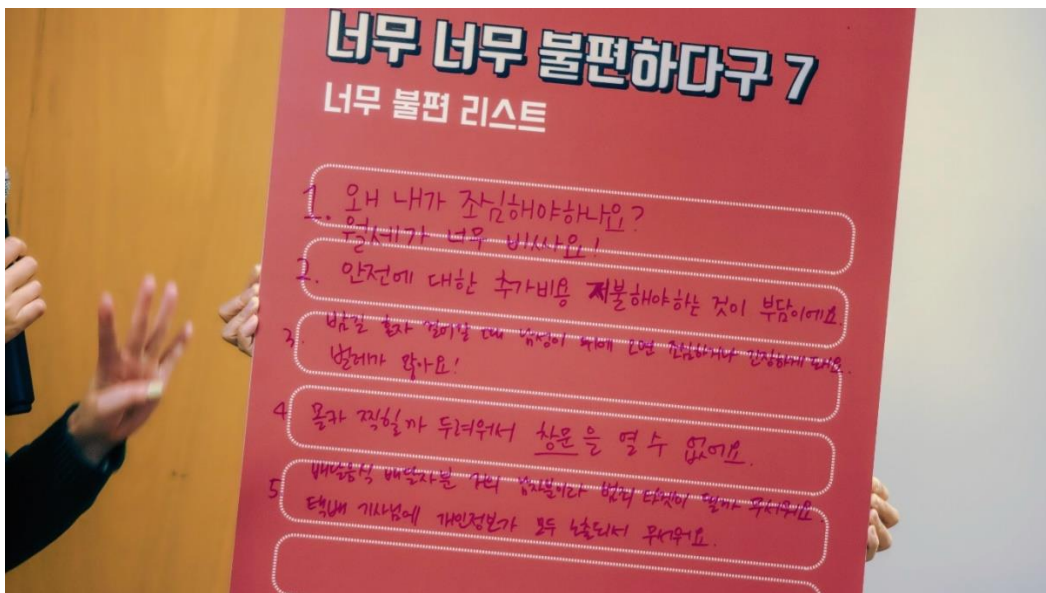 너무 너무 불편하다구 7
너무 불편 리스트
1. 왜 내가 조심해야하나요?
월세가 너무 비싸요!
2. 안전에 대한 추가비용 지불해야하는 것이 부담이에요
3. 밤길 혼자 걸어갈 때 남성이 뒤에 오면 조심하거나 긴장하게 돼요.
벌레가 많아요!
4 몰카 찍힐까 두려워서 창문을 열 수 없어요.
5 배달음식 배달자분 거의 남자분이라 범죄 타겟이 될까 무서워요.
택배 기사님에 개인정보가 모두 노출되서 무서워요.